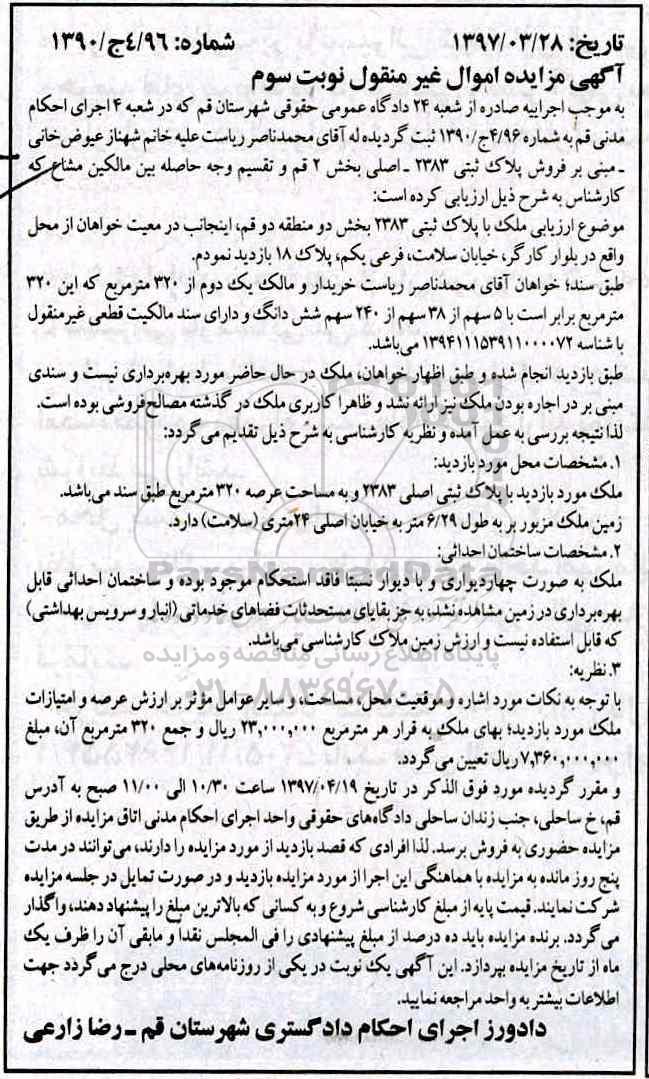 تاریخ: ۱۳۹۷/۰۳/۲۸ شماره: ۴/۹۶ج/۱۳۹۰
آگهی مزایده اموال غیر منقول نوبت سوم
به موجب اجراییه صادره از شعبه ۲۴ دادگاه عمومی حقوقی شهرستان قم که در شعبه ۴ اجرای احکام
مدنی قم به شماره ۴/۹۶ج/۱۳۹۰ ثبت گردیده له آقای محمدناصر ریاست علیه خانم شهناز عیوض‌خانی
ـ مبنی بر فروش پلاک ثبتی ۲۳۸۳ ـ اصلی بخش ۲ قم و تقسیم وجه حاصله بین مالکین مشاع که
کارشناس به شرح ذیل ارزیابی کرده است:
موضوع ارزیابی ملک با پلاک ثبتی ۲۳۸۳ بخش دو منطقه دو قم، اینجانب در معیت خواهان از محل
واقع در بلوار کارگر، خیابان سلامت، فرعی یکم، پلاک ۱۸ بازدید نمودم.
طبق سند؛ خواهان آقای محمدناصر ریاست خریدار و مالک یک دوم از ۳۲۰ مترمربع که این ۳۲۰
مترمربع برابر است با ۵ سهم از ۳۸ سهم از ۲۴۰ سهم شش دانگ و دارای سند مالکیت قطعی غیرمنقول
با شناسه ۱۳۹۴۱۱۱۵۳۹۱۱۰۰۰۰۷۲ می‌باشد.
طبق بازدید انجام شده و طبق اظهار خواهان، ملک در حال حاضر مورد بهره‌برداری نیست و سندی
مبنی بر در اجاره بودن ملک نیز ارائه نشد و ظاهرا کاربری ملک در گذشته مصالح‌فروشی بوده است.
لذا نتیجه بررسی به عمل آمده و نظریه کارشناسی به شرح ذیل تقدیم می‌گردد:
۱. مشخصات محل مورد بازدید:
ملک مورد بازدید با پلاک ثبتی اصلی ۲۳۸۳ و به مساحت عرصه ۳۲۰ مترمربع طبق سند می‌باشد.
زمین ملک مزبور بر به طول ۶/۲۹ متر به خیابان اصلی ۲۴متری (سلامت) دارد.
۲. مشخصات ساختمان احداثی:
ParsNamadData
ملک به صورت چهاردیواری و با دیوار نسبتا فاقد استحکام موجود بوده و ساختمان احداثی قابل
بهره‌برداری در زمین مشاهده نشد، به جز بقایای مستحدثات فضاهای خدماتی (انبار و سرویس بهداشتی)
که قابل استفاده نیست و ارزش زمین ملاک کارشناسی می‌باشد.
پایگاه اطلاع رسانی مناقصه و مزایده
۳. نظریه:
۰۲۱-۸۸۳۴۹۶۷۰-۵
با توجه به نکات مورد اشاره و موقعیت محل، مساحت، و سایر عوامل مؤثر بر ارزش عرصه و امتیازات
ملک مورد بازدید؛ بهای ملک به قرار هر مترمربع ۲۳,۰۰۰,۰۰۰ ریال و جمع ۳۲۰ مترمربع آن، مبلغ
۷,۳۶۰,۰۰۰,۰۰۰ ریال تعیین می‌گردد.
و مقرر گردیده مورد فوق الذکر در تاریخ ۱۳۹۷/۰۴/۱۹ ساعت ۱۰/۳۰ الی ۱۱/۰۰ صبح به آدرس
قم، خ ساحلی، جنب زندان ساحلی دادگاه‌های حقوقی واحد اجرای احکام مدنی اتاق مزایده از طریق
مزایده حضوری به فروش برسد. لذا افرادی که قصد بازدید از مورد مزایده را دارند، می‌توانند در مدت
پنج روز مانده به مزایده با هماهنگی این اجرا از مورد مزایده بازدید و در صورت تمایل در جلسه مزایده
شرکت نمایند. قیمت پایه از مبلغ کارشناسی شروع و به کسانی که بالاترین مبلغ را پیشنهاد دهند، واگذار
می‌گردد. برنده مزایده باید ده درصد از مبلغ پیشنهادی را فی المجلس نقدا و مابقی آن را ظرف یک
ماه از تاریخ مزایده بپردازد. این آگهی یک نوبت در یکی از روزنامه‌های محلی درج می‌گردد جهت
اطلاعات بیشتر به واحد مراجعه نمایید.
دادورز اجرای احکام دادگستری شهرستان قم ـ رضا زارعی